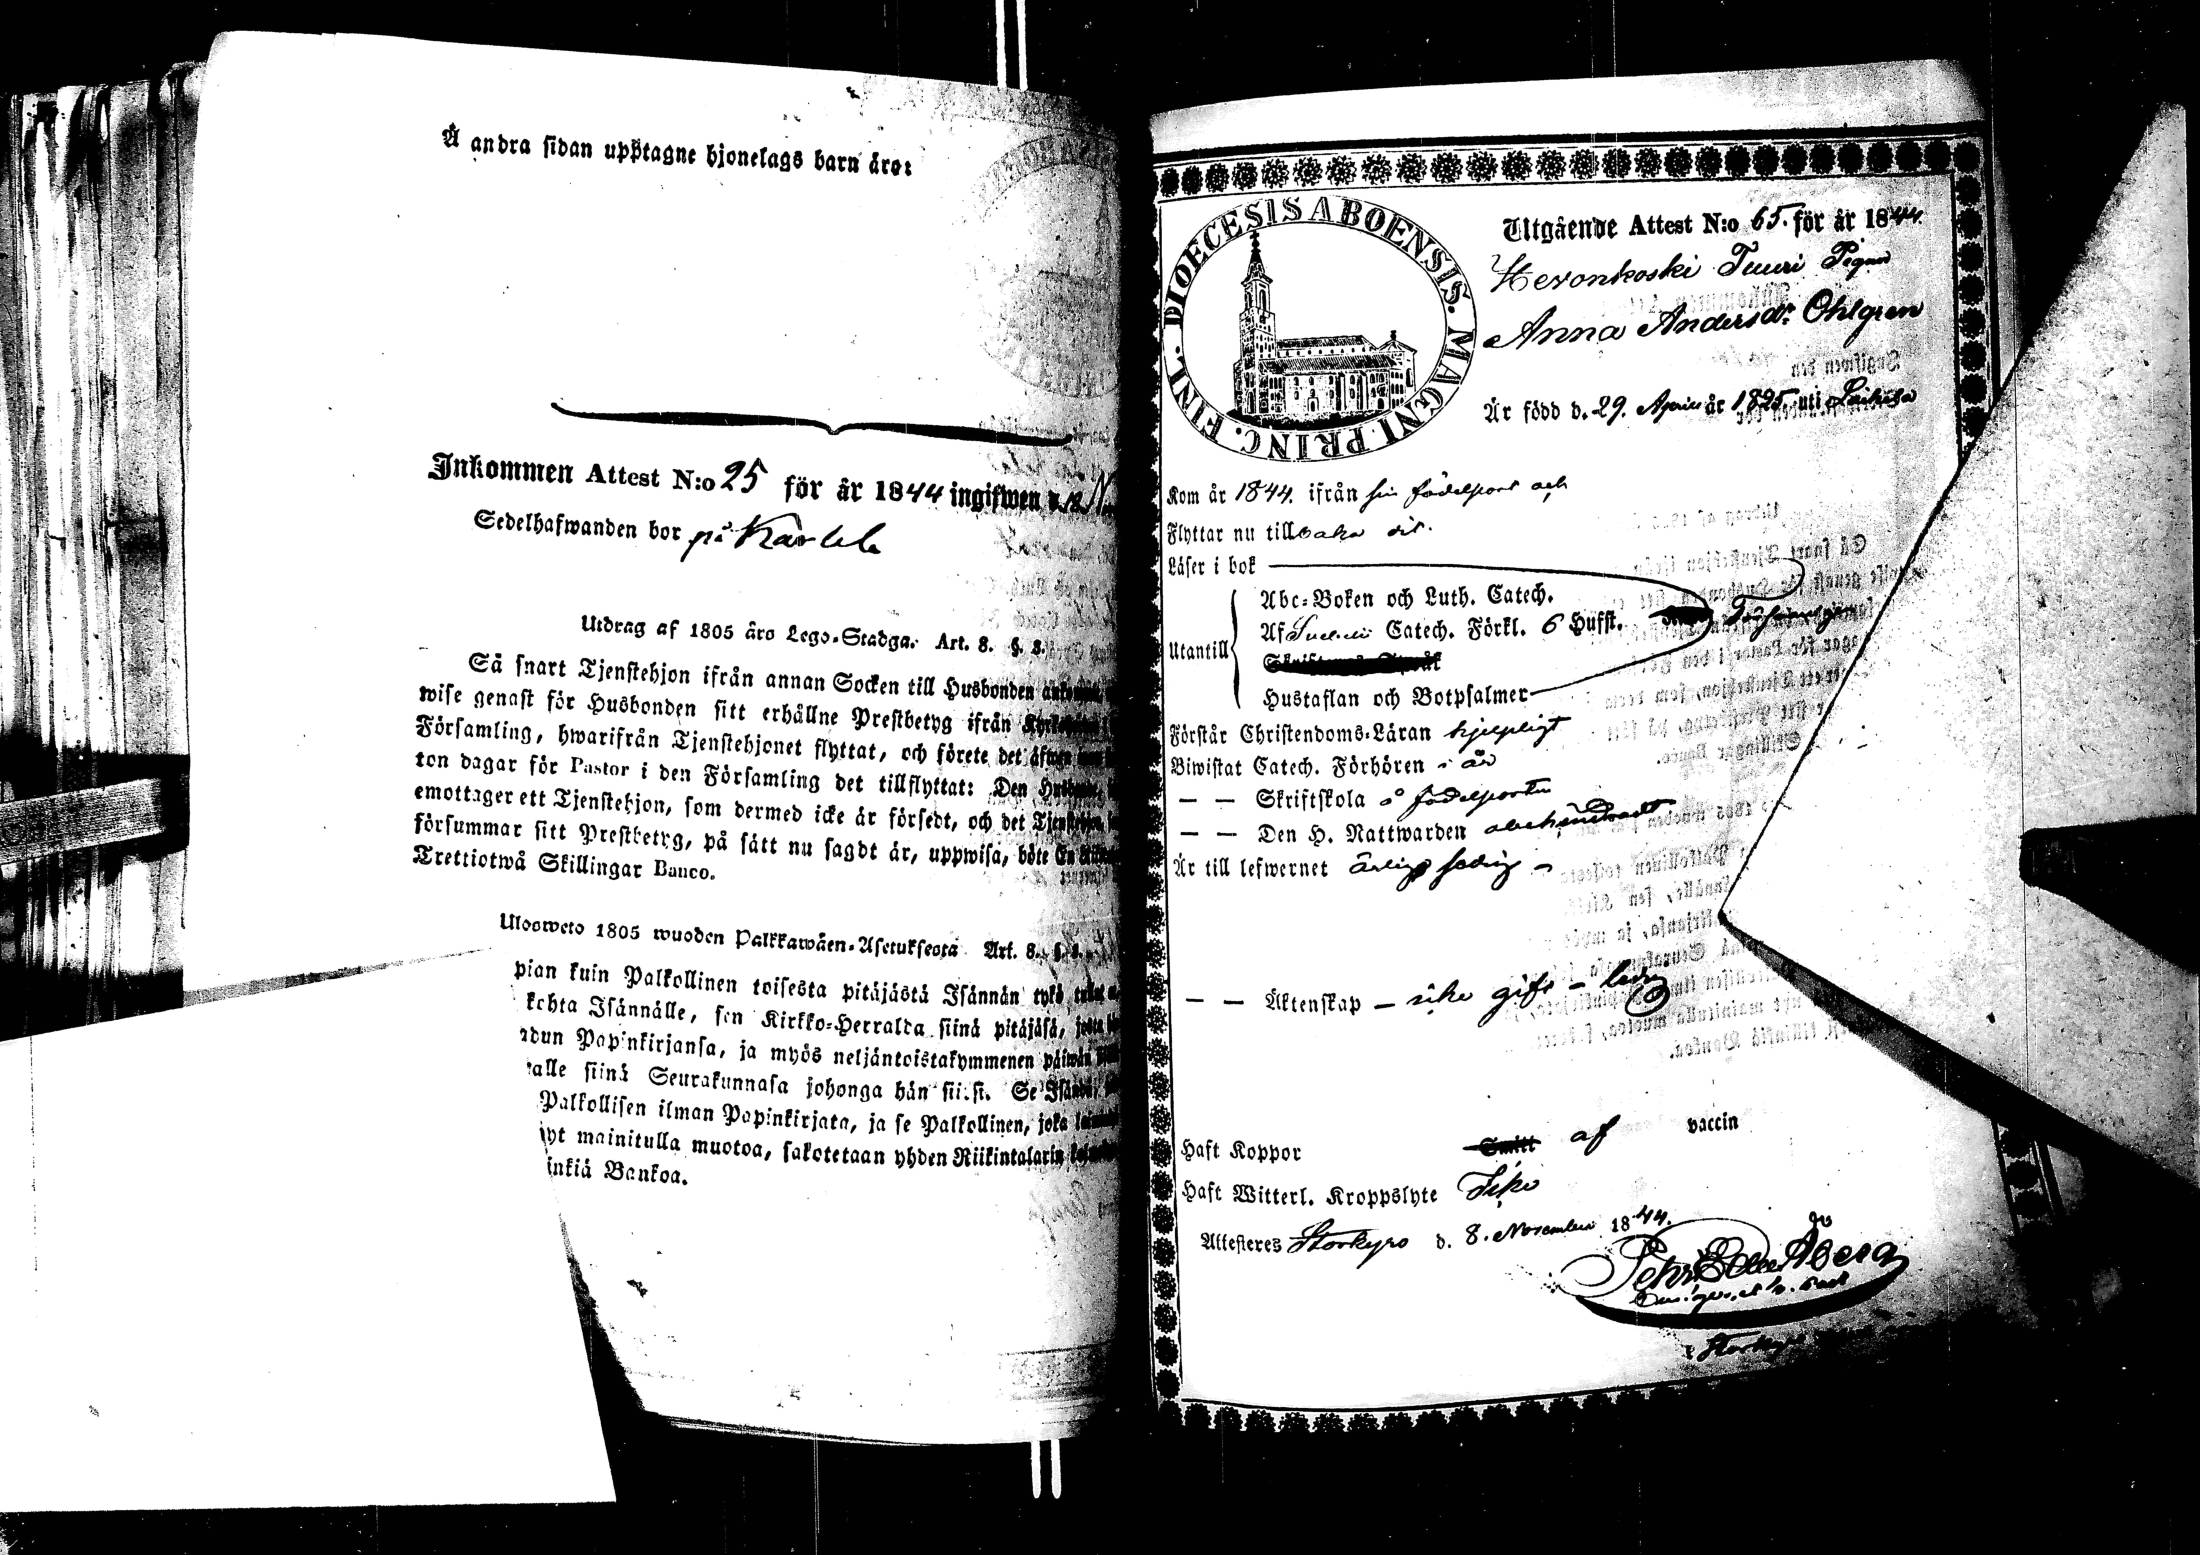 Å andra sidan upptagne hjonelags barn äro:
Inkommen Attest N:o 25 för år 1844 ingifwen d. 12 N
Sedelhafwanden bor på
Utdrag af 1805 åro Lego-Stadga. Art. 8. §. 8.
Så snart Tjenstehjon ifrån annan Socken till Husbonden
wise genast för Husbonden sitt erhållne Prestbetyg ifrån
Församling, hwarifrån Tjenstehjonet flyttat, och förete det
ton dagar för Pastor i den Församling det tillflyttat: Den
emottager ett Tjenstehjon, som dermed icke är försedt, och det
försummar sitt Prestbetyg, på sätt nu sagdt är, uppwisa, böte En
Trettiotwå Skillingar Banco.
Ulosweto 1805 wuoden Palkkawäen-Asetuksesta Art. 8. §. 8.
pian kuin Palkollinen toisesta pitäjästä Isännän tykö
kohta Isännälle, sen Kirkko-Herralda siinä pitäjäsä,
adun Papinkirjansa, ja myös neljäntoistakymmenen päiwän
alle siinä Seurakunnasa johonga hän siirst. Se
Palkollisen ilman Papinkirjata, ja se Palkollinen, joka
yt mainitulla muotoa, sakotetaan yhden Riikintalarin
inkiä Bankoa.
DIOECESIS ABOENSIS. MAGNI. PRINC. FINL.
Utgående Attest N:o 65. för år 1844.
Hevonkoski Tuuri Pigan
Anna Andersdr Ohlgren
Är född d. 29. April år 1825 uti Laihela
Kom år 1844. ifrån sin födelseort och
Flyttar nu tillbaka dit.
Läser i bok
Abc-Boken och Luth. Catech.
Af Catech. Förkl. 6 Hufst.
Utantill
Hustaflan och Botpsalmer
Förstår Christendoms-Läran hjelpligt
Biwistat Catech. Förhören i år
— — Skriftskola å födelseorten
— — Den H. Nattwarden obehindradt
Är till lefwernet ärlig sedig —
— — Äktenskap — icke gift — ledig
Haft Koppor af vaccin
Haft Witterl. Kroppslyte Icke
Attesteres Storkyro d. 8. November 1844.
Pehr Åberg
Storkyro